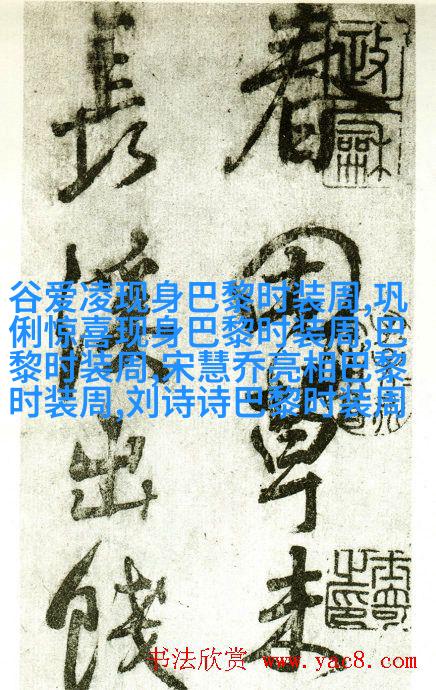 谷爱凌现身巴黎时装周,巩
俐惊喜现身巴黎时装周,巴
黎时装周,宋慧乔亮相巴黎
时装周,刘诗诗巴黎时装周
未
長
出餞
书法欣赏 www.yac8.com